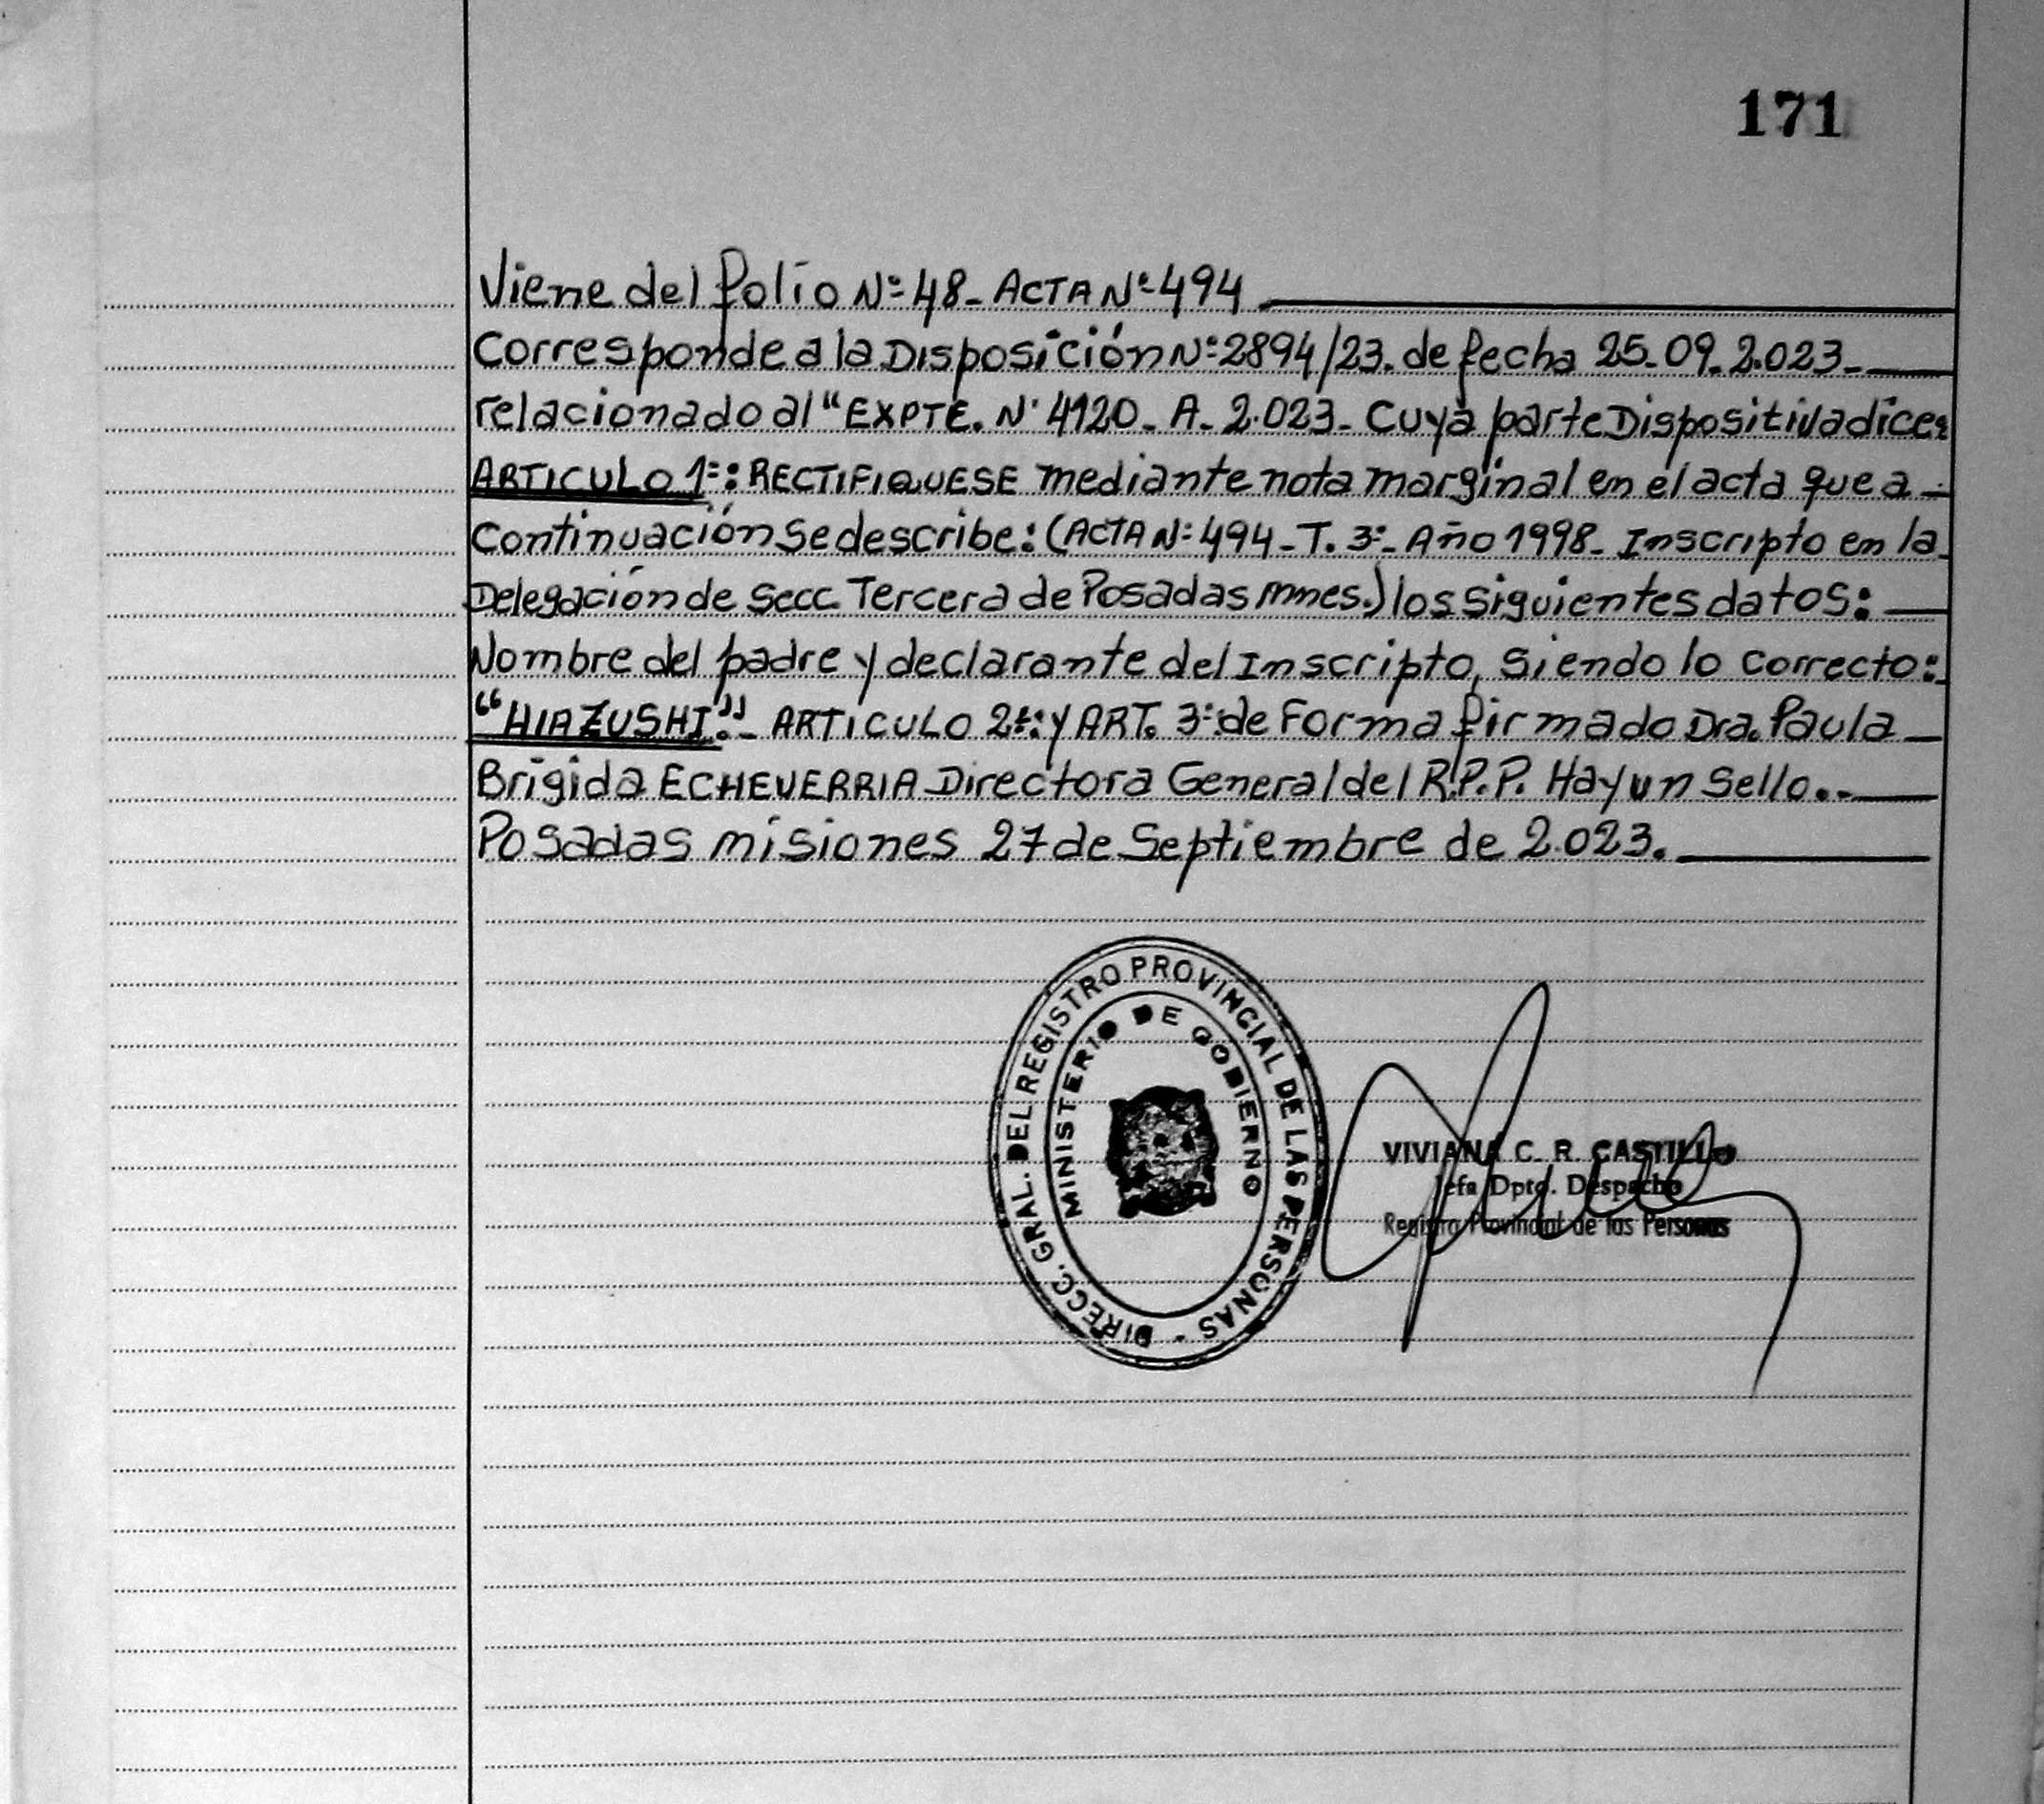 171
Viene del folio Nº 48_ ACTA Nº 494
Corresponde a la Disposición Nº 2894/23. de fecha 25_09_2.023_
relacionado al "EXPTE. Nº 4120_ A_ 2.023_ Cuya parte Dispositiva dice:
ARTICULO 1º: RECTIFIQUESE mediante nota marginal en el acta que a
Continuación Se describe: (ACTA Nº 494_T. 3º_ Año 1998_ Inscripto en la
Delegación de Secc. Tercera de Posadas Mnes.) los Siguientes datos:
Nombre del padre y declarante del Inscripto, Siendo lo Correcto:
"HIAZUSHI."_ ARTICULO 2º: y ART. 3º: de Forma firmado Dra. Paula
Brigida ECHEVERRIA Directora General del R.P.P. Hay un Sello._
Posadas misiones 27 de Septiembre de 2.023.
DIRECC. GRAL. DEL REGISTRO PROVINCIAL DE LAS PERSONAS -
MINISTERIO DE GOBIERNO
VIVIANA C. R. CASTILLO
Jefa Dpto. Despacho
Registro Provincial de las Personas